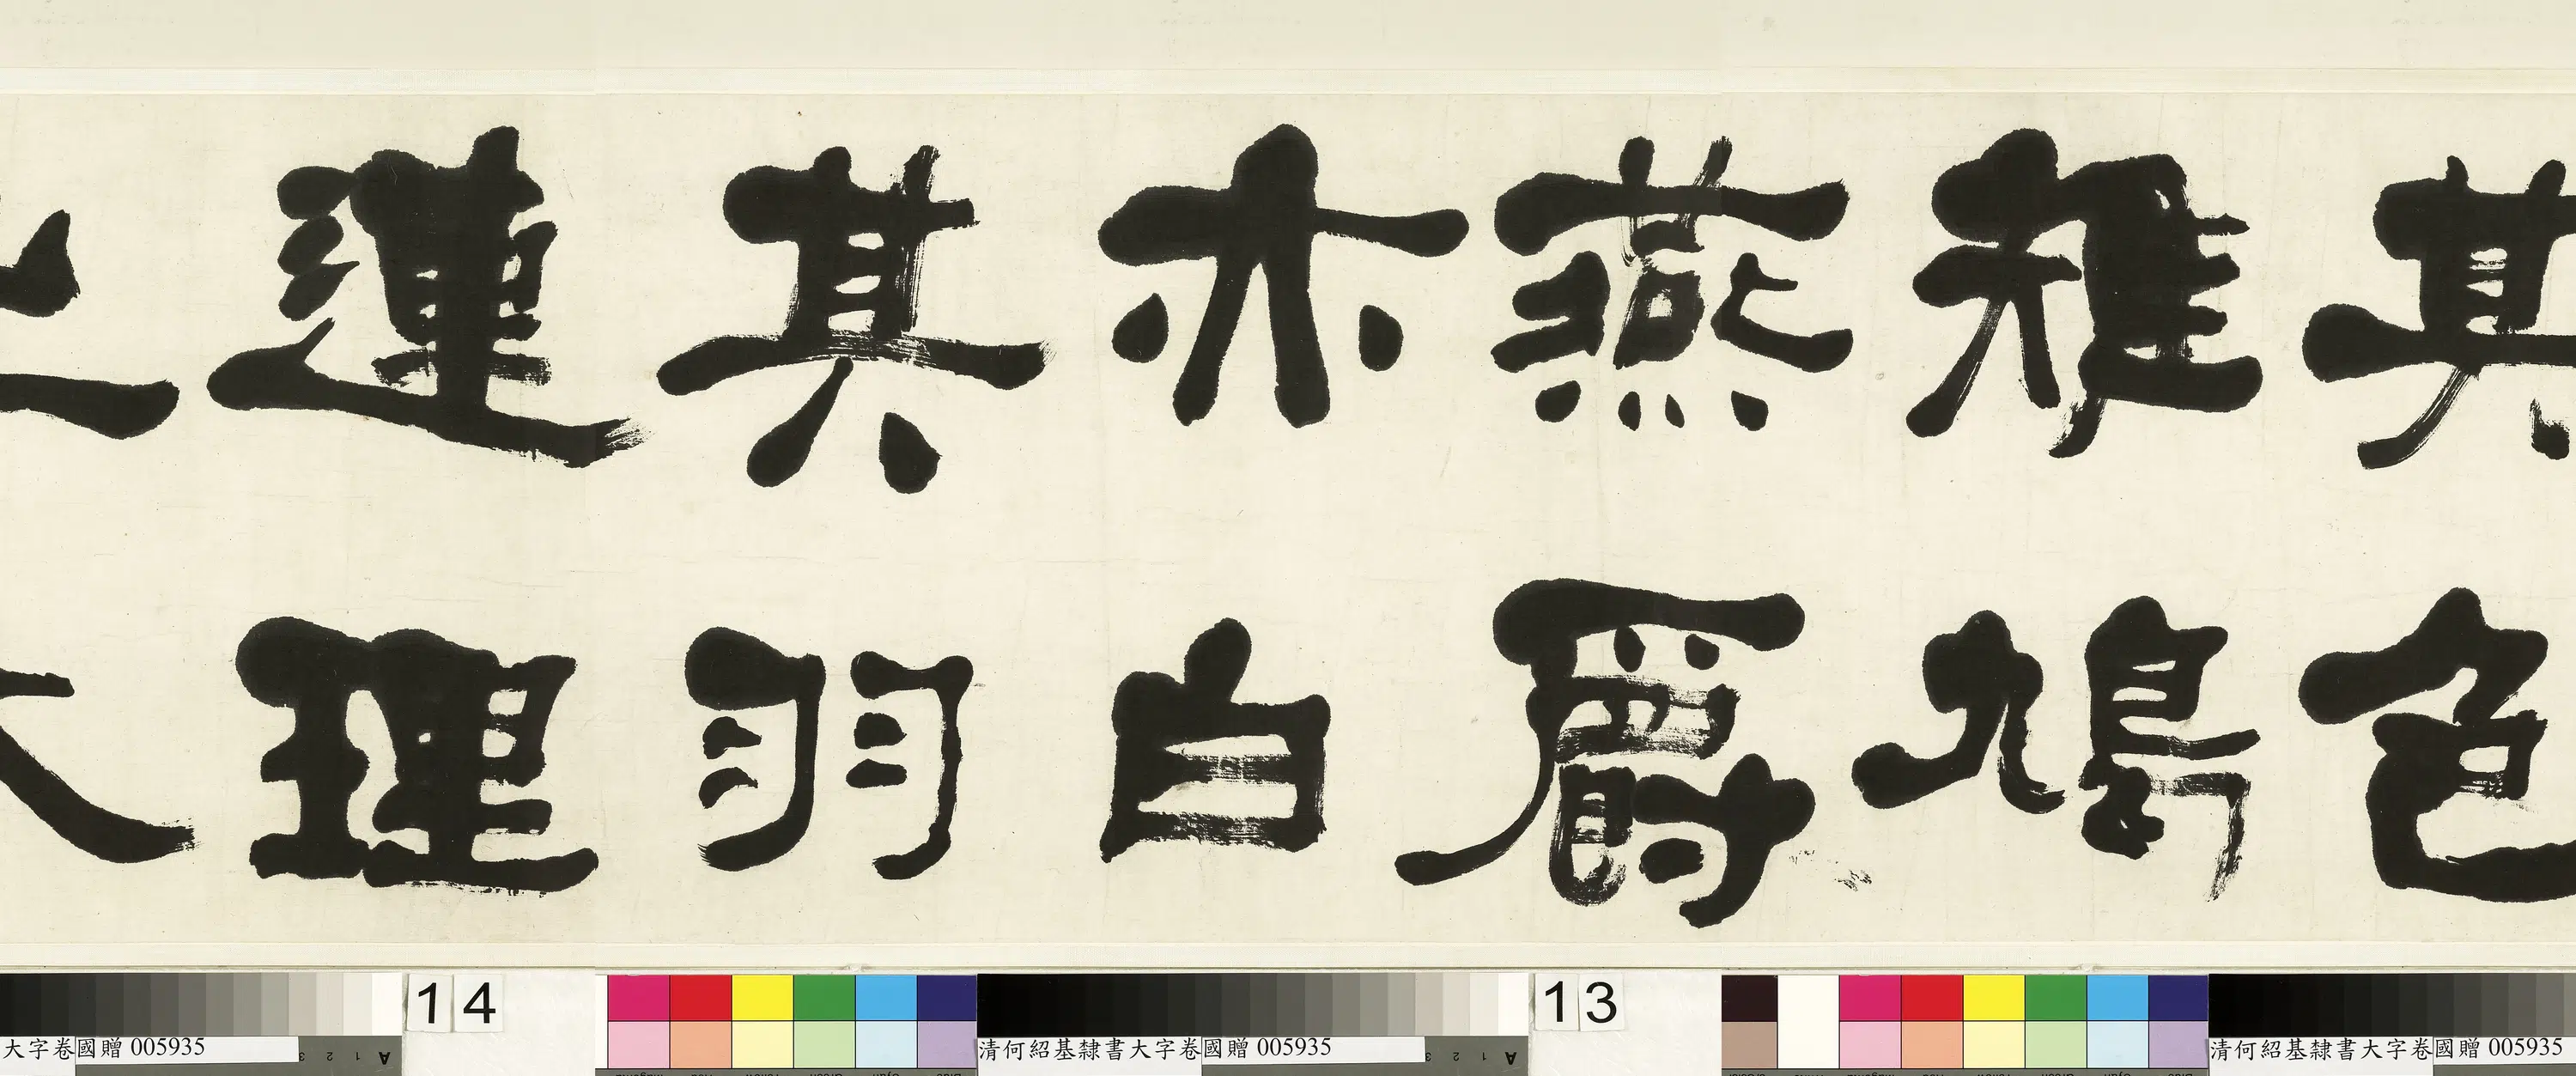 其色
雉鳩
燕爵
亦白
其羽
連理
14
13
大字卷國贈 005935
清何紹基隸書大字卷國贈 005935
清何紹基隸書大字卷國贈 005935